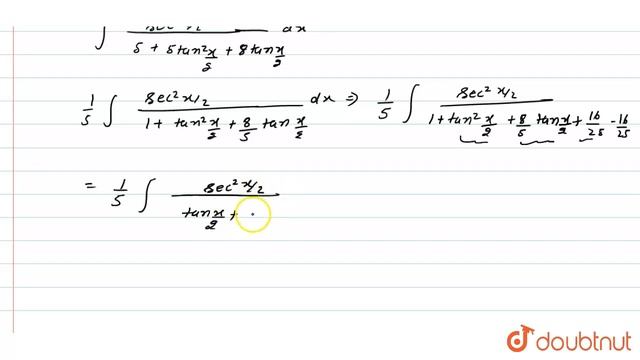 ∫ sec² x/2 / (5 + 5tan² x/2 + 8tan x/2) dx
1/5 ∫ sec² x/2 / (1 + tan² x/2 + 8/5 tan x/2) dx ⇒ 1/5 ∫ sec² x/2 / (1 + tan² x/2 + 8/5 tan x/2 + 16/25 - 16/25)
= 1/5 ∫ sec² x/2 / (tan x/2 + .
doubtnut